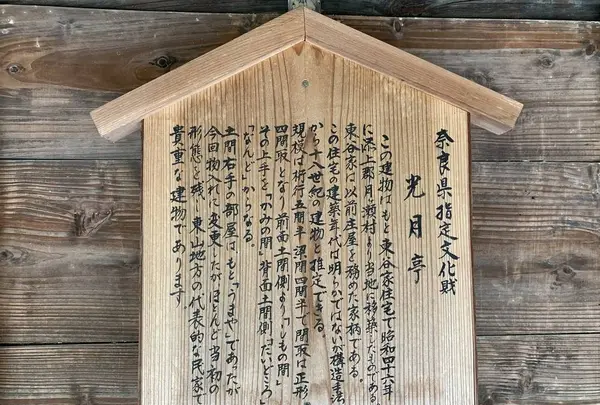 奈良県指定文化財
光月亭
この建物はもと東谷家住宅で昭和四十六年
に添上郡月ヶ瀬村より当地に移築したものである。
東谷家は以前庄屋を務めた家柄である。
この住宅の建築年代は明らかではないが構造手法
から十八世紀の建物と推定できる。
規模は桁行五間半 梁間四間半で間取は正形
四間取となり前面土間側より「しもの間」
その上手を、「かみの間」背面土間側「だいどころ」
「なんど」からなる。
土間右手の部屋は、もと「うまや」であったが
今回物入れに変更したがほとんど当初の
形態を残し東山地方の代表的な民家で
貴重な建物であります。